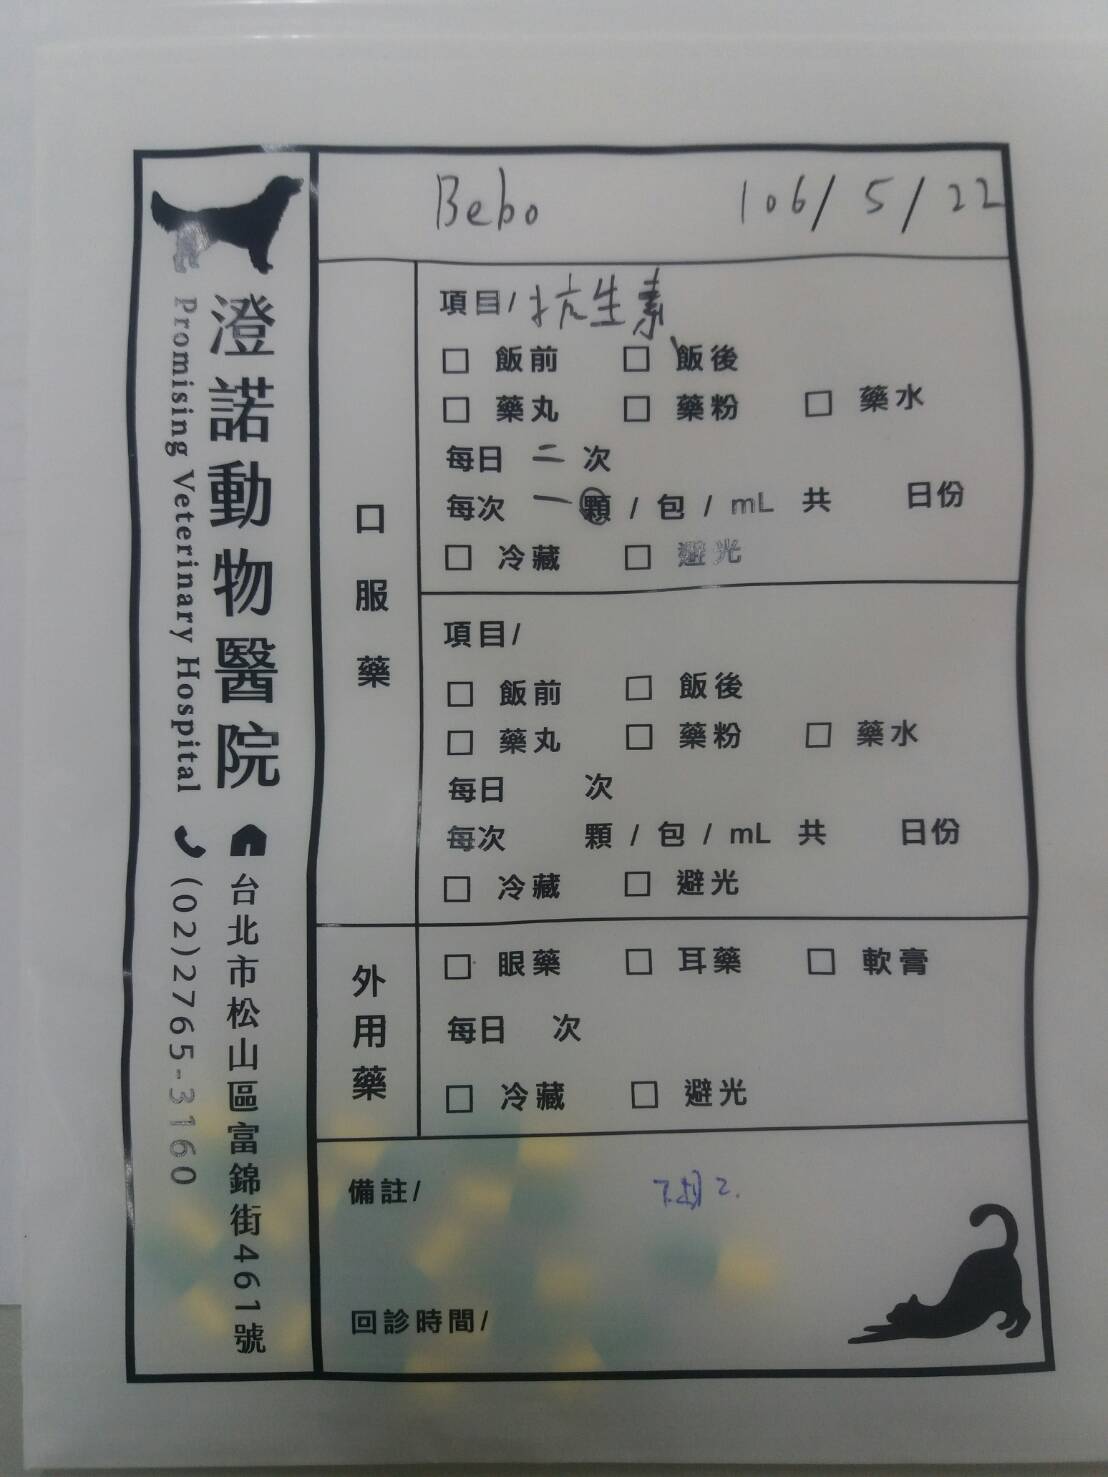 Bebo 106/5/22
澄諾動物醫院
Promising Veterinary Hospital
台北市松山區富錦街461號
(02)2765-3160
口服藥
項目/抗生素
□ 飯前 □ 飯後
□ 藥丸 □ 藥粉 □ 藥水
每日 二 次
每次 一 顆 / 包 / mL 共 日份
□ 冷藏 □ 避光
項目/
□ 飯前 □ 飯後
□ 藥丸 □ 藥粉 □ 藥水
每日 次
每次 顆 / 包 / mL 共 日份
□ 冷藏 □ 避光
外用藥
□ 眼藥 □ 耳藥 □ 軟膏
每日 次
□ 冷藏 □ 避光
備註/
回診時間/